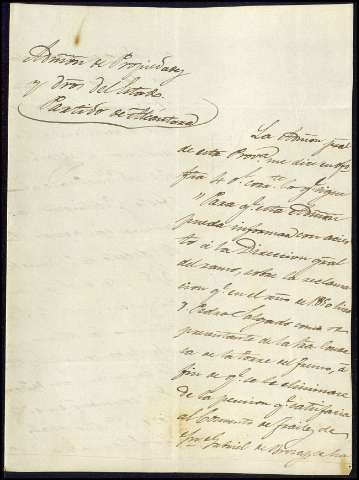 Admon de Propiedades
y dros del Estado
Partido de Alcantara
La Admon pral
de esta Prova me dice en
fha 4 del corrte lo que sigue
"Para qe esta Admon
pueda informar con acier
to á la Direccion gral
del ramo, sobre la reclama
cion qe en el año de 1850 hizo
D Pedro Salgado como re
presentante de la Sra Conde
sa de la Torre del Fresno, á
fin de qe se le eliminare
de la pension qe satisfacia
al Convento de frailes de
Sn Gabriel de Brozas, de